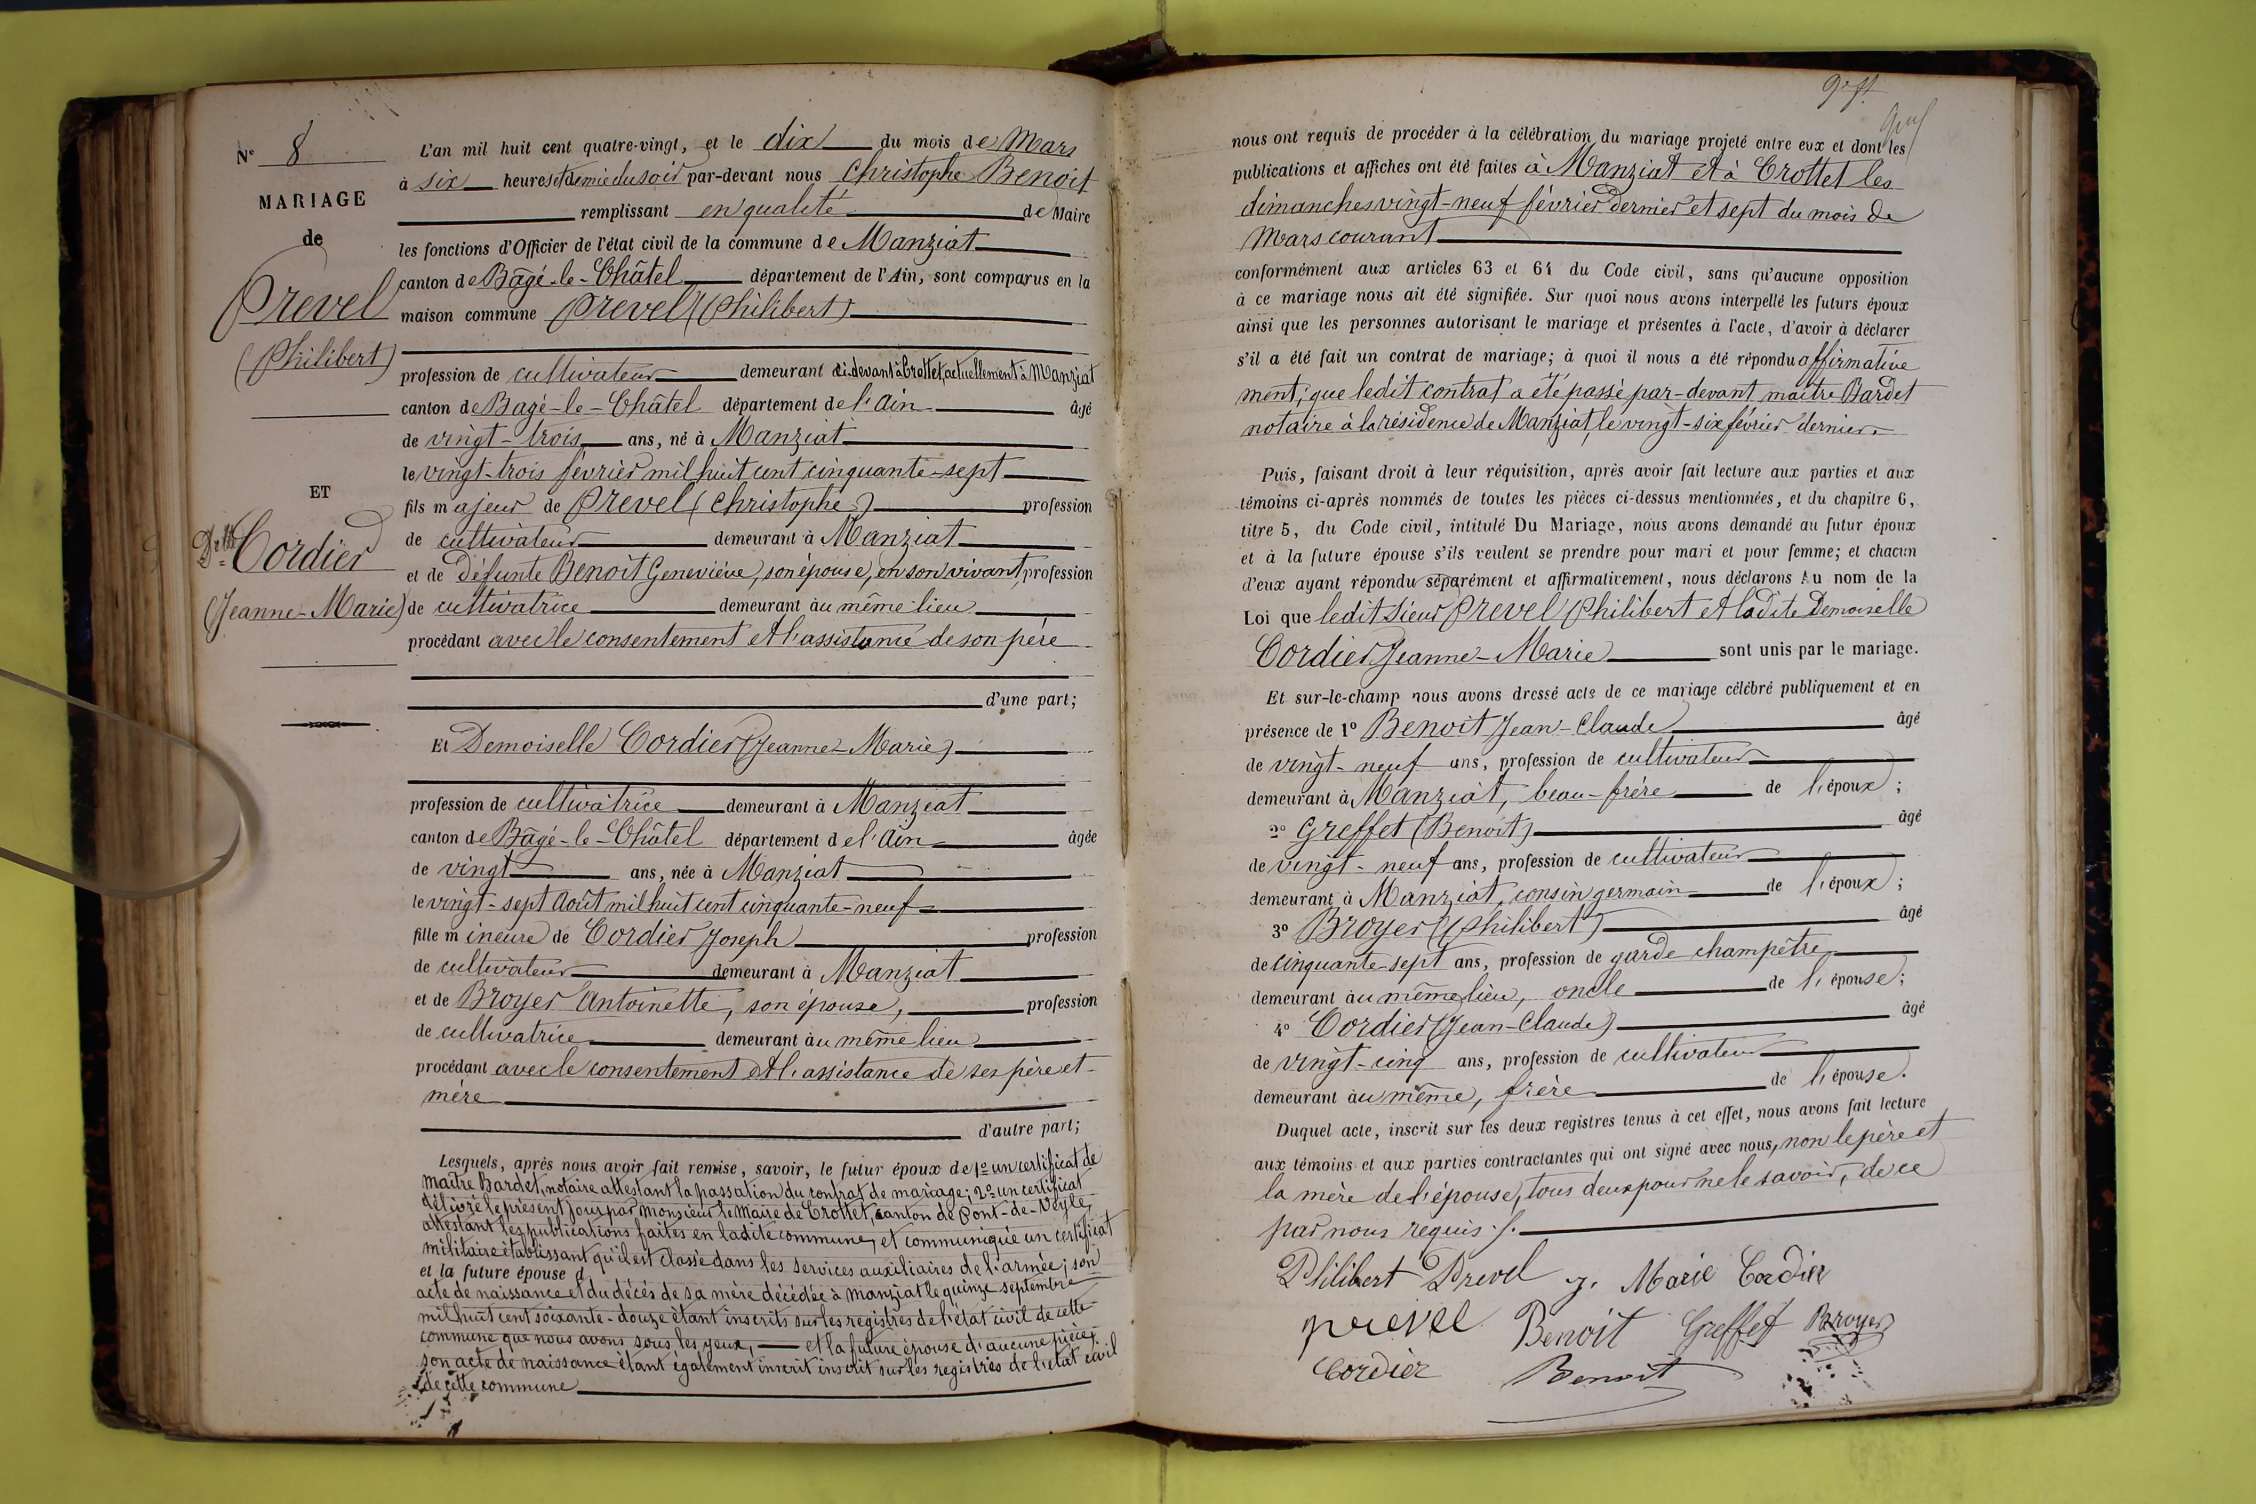 N° 8
MARIAGE
de
Prevel
(Philibert)
ET
Dlle Cordier
(Jeanne-Marie)
L'an mil huit cent quatre-vingt, et le dix du mois de Mars
à six heures et demie du soir par-devant nous Christophe Benoit
remplissant en qualité de Maire
les fonctions d'Officier de l'état civil de la commune de Manziat
canton de Bâgé-le-Châtel département de l'Ain, sont comparus en la
maison commune Prevel (Philibert)
profession de cultivateur demeurant ci-devant à Crottet, actuellement à Manziat
canton de Bagé-le-Châtel département de l'Ain âgé
de vingt-trois ans, né à Manziat
le vingt-trois février mil huit cent cinquante-sept
fils majeur de Prevel (Christophe) profession
de cultivateur demeurant à Manziat
et de défunte Benoit Geneviève, son épouse, en son vivant, profession
de cultivatrice demeurant au même lieu
procédant avec le consentement et l'assistance de son père
d'une part;
Et Demoiselle Cordier (Jeanne-Marie)
profession de cultivatrice demeurant à Manziat
canton de Bâgé-le-Châtel département de l'Ain âgée
de vingt ans, née à Manziat
le vingt-sept Août mil huit cent cinquante-neuf
fille mineure de Cordier Joseph profession
de cultivateur demeurant à Manziat
et de Broyer Antoinette, son épouse, profession
de cultivatrice demeurant au même lieu
procédant avec le consentement et l'assistance de ses père et
mère
d'autre part;
Lesquels, après nous avoir fait remise, savoir, le futur époux de 1° un certificat de
maître Bardet, notaire attestant la passation du contrat de mariage; 2° un certificat
délivré le présent jour par Monsieur le Maire de Crottet, canton de Pont-de-Veyle,
attestant les publications faites en ladite commune, et communiqué un certificat
militaire établissant qu'il est classé dans les services auxiliaires de l'armée; son
et la future épouse d
acte de naissance et du décès de sa mère décédée à Manziat le quinze septembre
mil huit cent soixante-douze étant inscrits sur les registres de l'état civil de cette
commune que nous avons sous les yeux, et la future épouse d'aucune pièce,
son acte de naissance étant également inscrit inscrit sur les registres de l'état civil
de cette commune
nous ont requis de procéder à la célébration du mariage projeté entre eux et dont les
publications et affiches ont été faites à Manziat et à Crottet les
dimanches vingt-neuf février dernier et sept du mois de
Mars courant
conformément aux articles 63 et 64 du Code civil, sans qu'aucune opposition
à ce mariage nous ait été signifiée. Sur quoi nous avons interpellé les futurs époux
ainsi que les personnes autorisant le mariage et présentes à l'acte, d'avoir à déclarer
s'il a été fait un contrat de mariage; à quoi il nous a été répondu affirmative
ment; que ledit contrat a été passé par-devant maître Bardet
notaire à la résidence de Manziat, le vingt-six février dernier.
Puis, faisant droit à leur réquisition, après avoir fait lecture aux parties et aux
témoins ci-après nommés de toutes les pièces ci-dessus mentionnées, et du chapitre 6,
titre 5, du Code civil, intitulé Du Mariage, nous avons demandé au futur époux
et à la future épouse s'ils veulent se prendre pour mari et pour femme; et chacun
d'eux ayant répondu séparément et affirmativement, nous déclarons Au nom de la
Loi que ledit Sieur Prevel Philibert et ladite Demoiselle
Cordier Jeanne-Marie sont unis par le mariage.
Et sur-le-champ nous avons dressé acte de ce mariage célébré publiquement et en
présence de 1° Benoit Jean-Claude âgé
de vingt-neuf ans, profession de cultivateur
demeurant à Manziat, beau-frère de l'époux;
2° Greffet (Benoit) âgé
de vingt-neuf ans, profession de cultivateur
demeurant à Manziat, cousin germain de l'époux;
3° Broyer (Philibert) âgé
de cinquante-sept ans, profession de garde champêtre
demeurant au même lieu, oncle de l'épouse;
4° Cordier (Jean-Claude) âgé
de vingt-cinq ans, profession de cultivateur
demeurant au même, frère de l'épouse.
Duquel acte, inscrit sur les deux registres tenus à cet effet, nous avons fait lecture
aux témoins et aux parties contractantes qui ont signé avec nous, non le père et
la mère de l'épouse, tous deux pour ne le savoir, de ce
par nous requis./.
Philibert Prevel J. Marie Cordier
prevel Benoit Greffet Broyer
Cordier Benoit